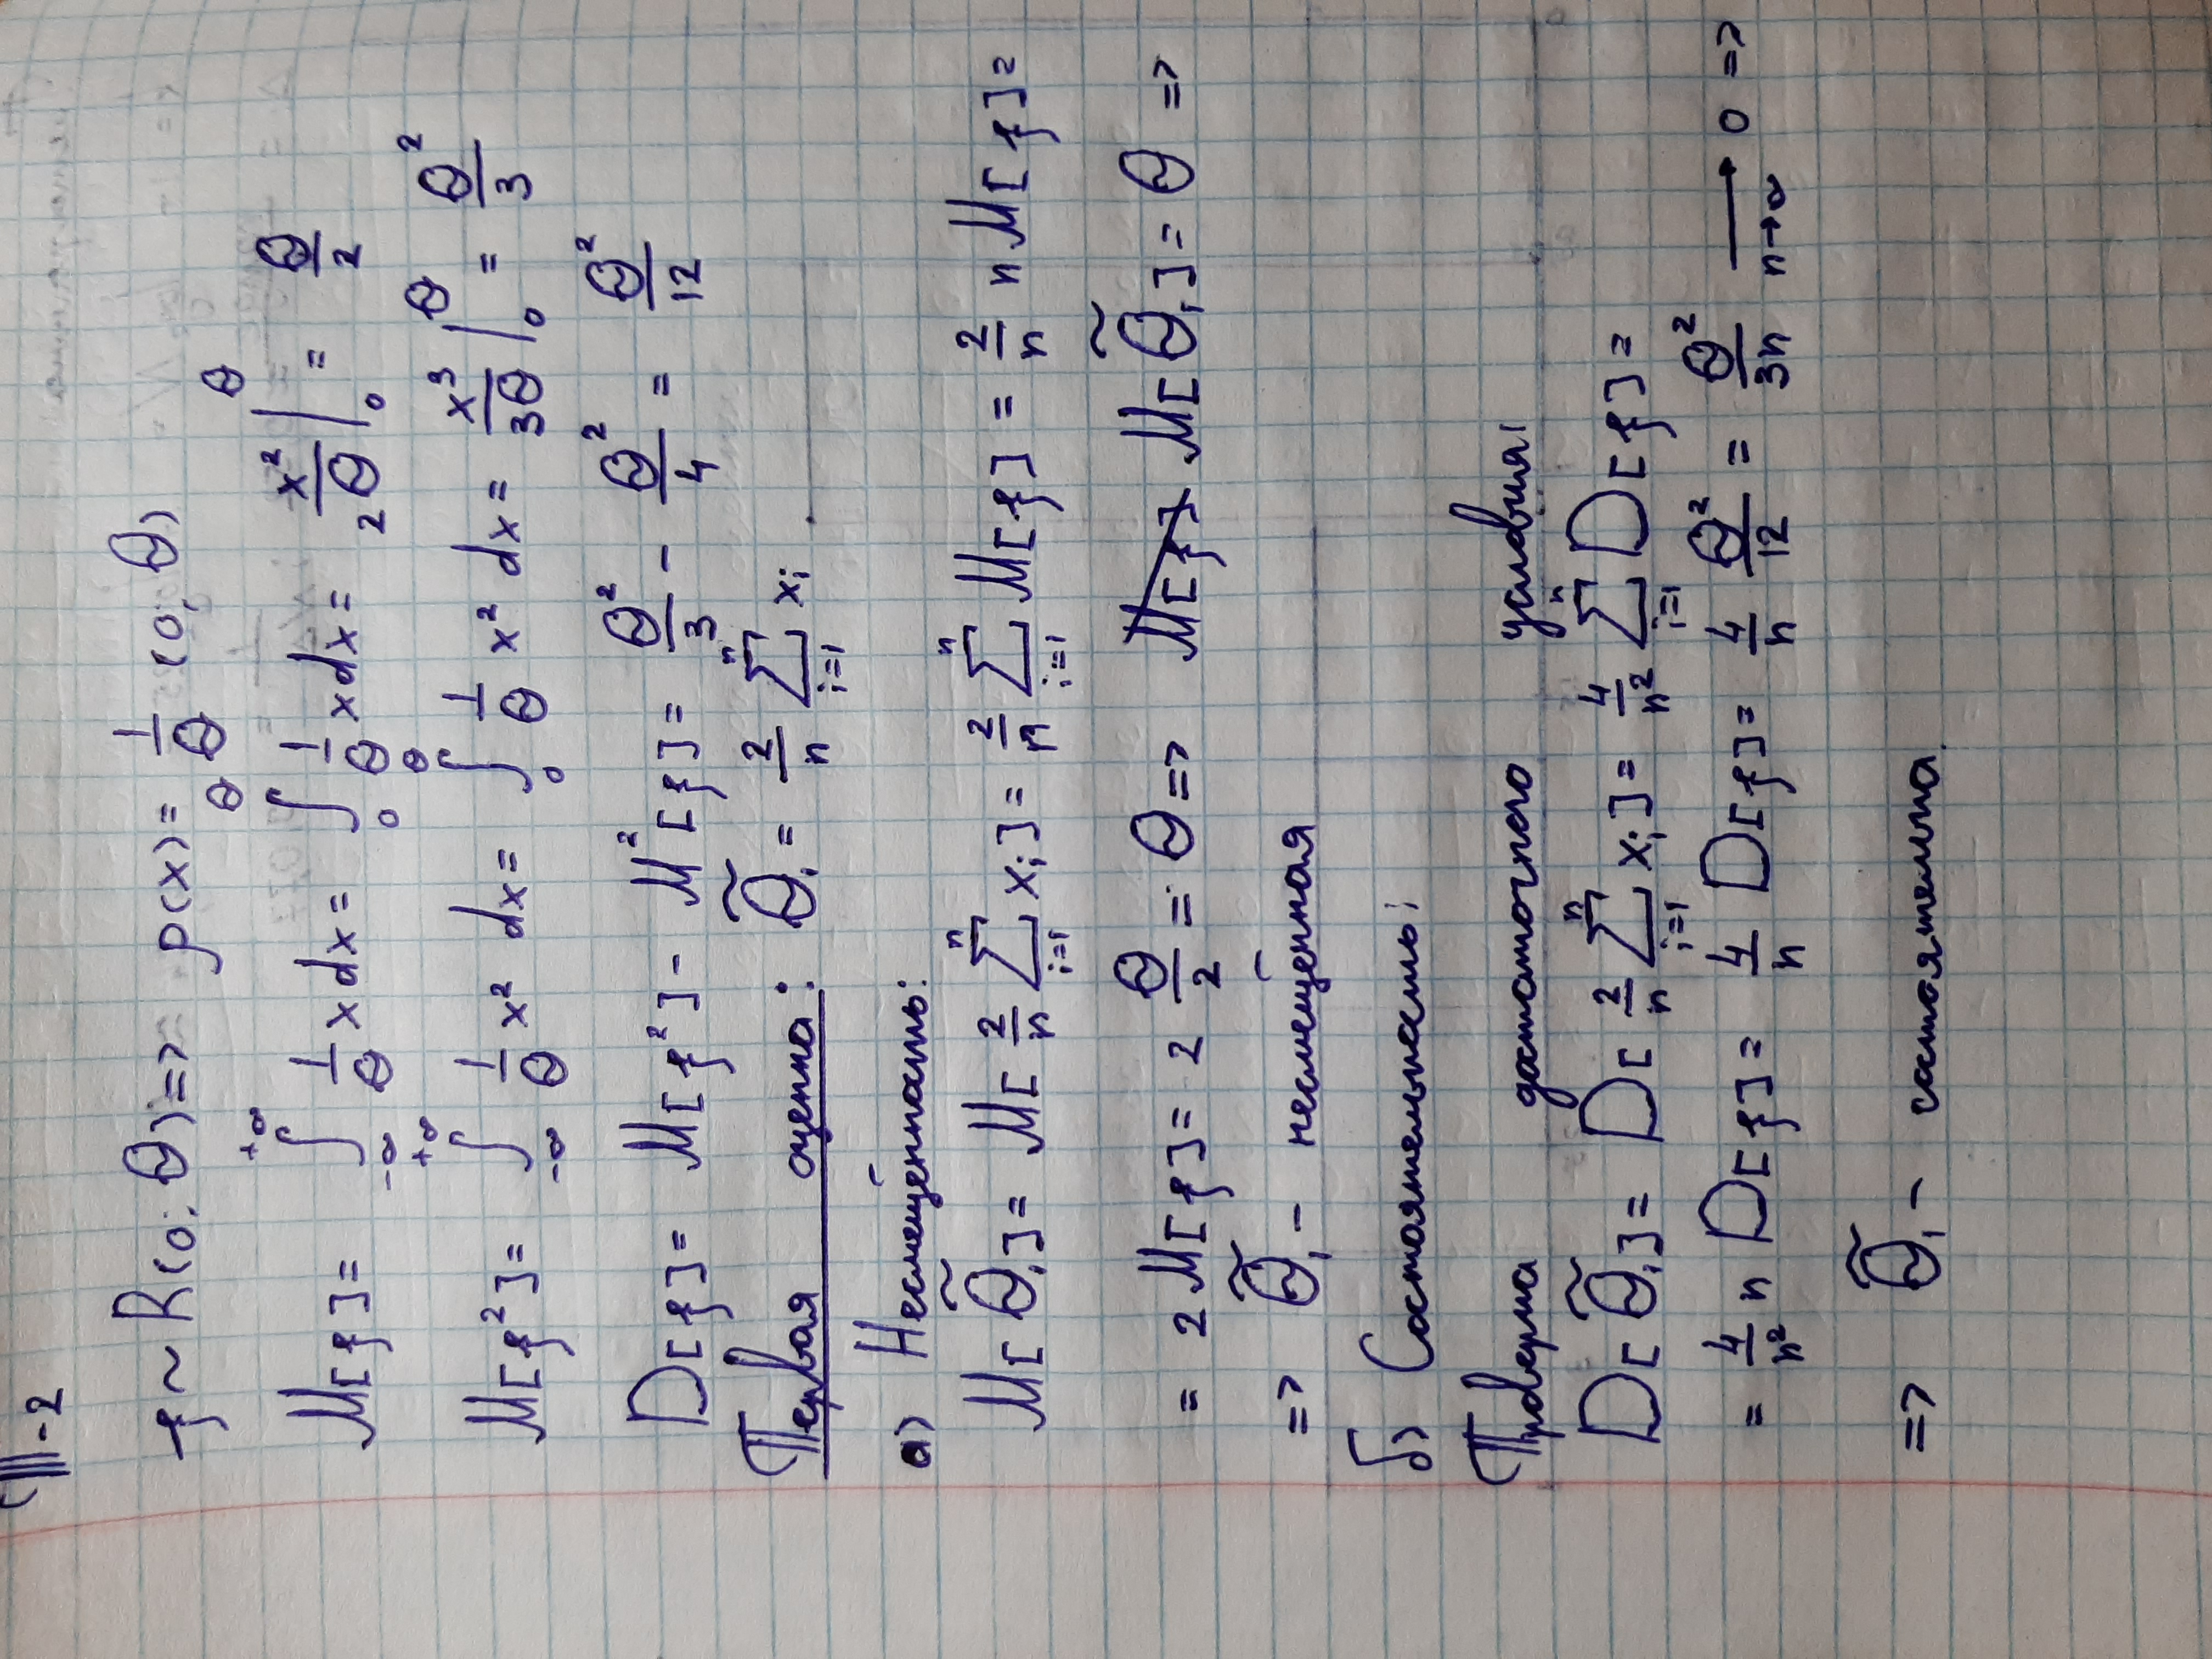 Т-2
ξ ~ R(0; Θ) => p(x) = 1/Θ (0; Θ)
M[ξ] = ∫_{-∞}^{+∞} 1/Θ x dx = ∫_0^Θ 1/Θ x dx = x²/2Θ |_0^Θ = Θ/2
M[ξ²] = ∫_{-∞}^{+∞} 1/Θ x² dx = ∫_0^Θ 1/Θ x² dx = x³/3Θ |_0^Θ = Θ²/3
D[ξ] = M[ξ²] - M²[ξ] = Θ²/3 - Θ²/4 = Θ²/12
Первая оценка: Θ̃₁ = 2/n ∑_{i=1}^n xᵢ
а) Несмещённость:
M[Θ̃₁] = M[2/n ∑_{i=1}^n xᵢ] = 2/n ∑_{i=1}^n M[ξ] = 2/n n M[ξ] =
= 2 M[ξ] = 2 Θ/2 = Θ => M[ξ] M[Θ̃₁] = Θ =>
=> Θ̃₁ - несмещённая
б) Состоятельность:
Проверка достаточного условия:
D[Θ̃₁] = D[2/n ∑_{i=1}^n xᵢ] = 4/n² ∑_{i=1}^n D[ξ] =
= 4/n² n D[ξ] = 4/n D[ξ] = 4/n Θ²/12 = Θ²/3n ⟶_{n→∞} 0 =>
=> Θ̃₁ - состоятельна.